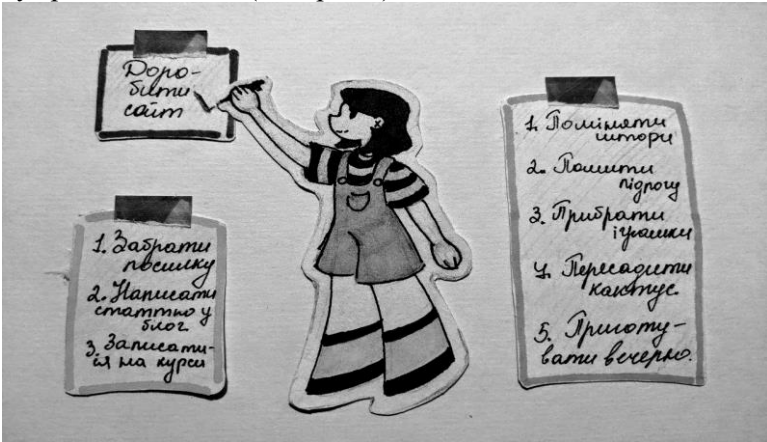 Доро-
бити
сайт
1. Забрати
посилку
2. Написати
статтю у
блог
3. Записати-
ся на курси
1. Поміняти
штори
2. Помити
підлогу
3. Прибрати
іграшки
4. Пересадити
кактус
5. Приготу-
вати вечерю.